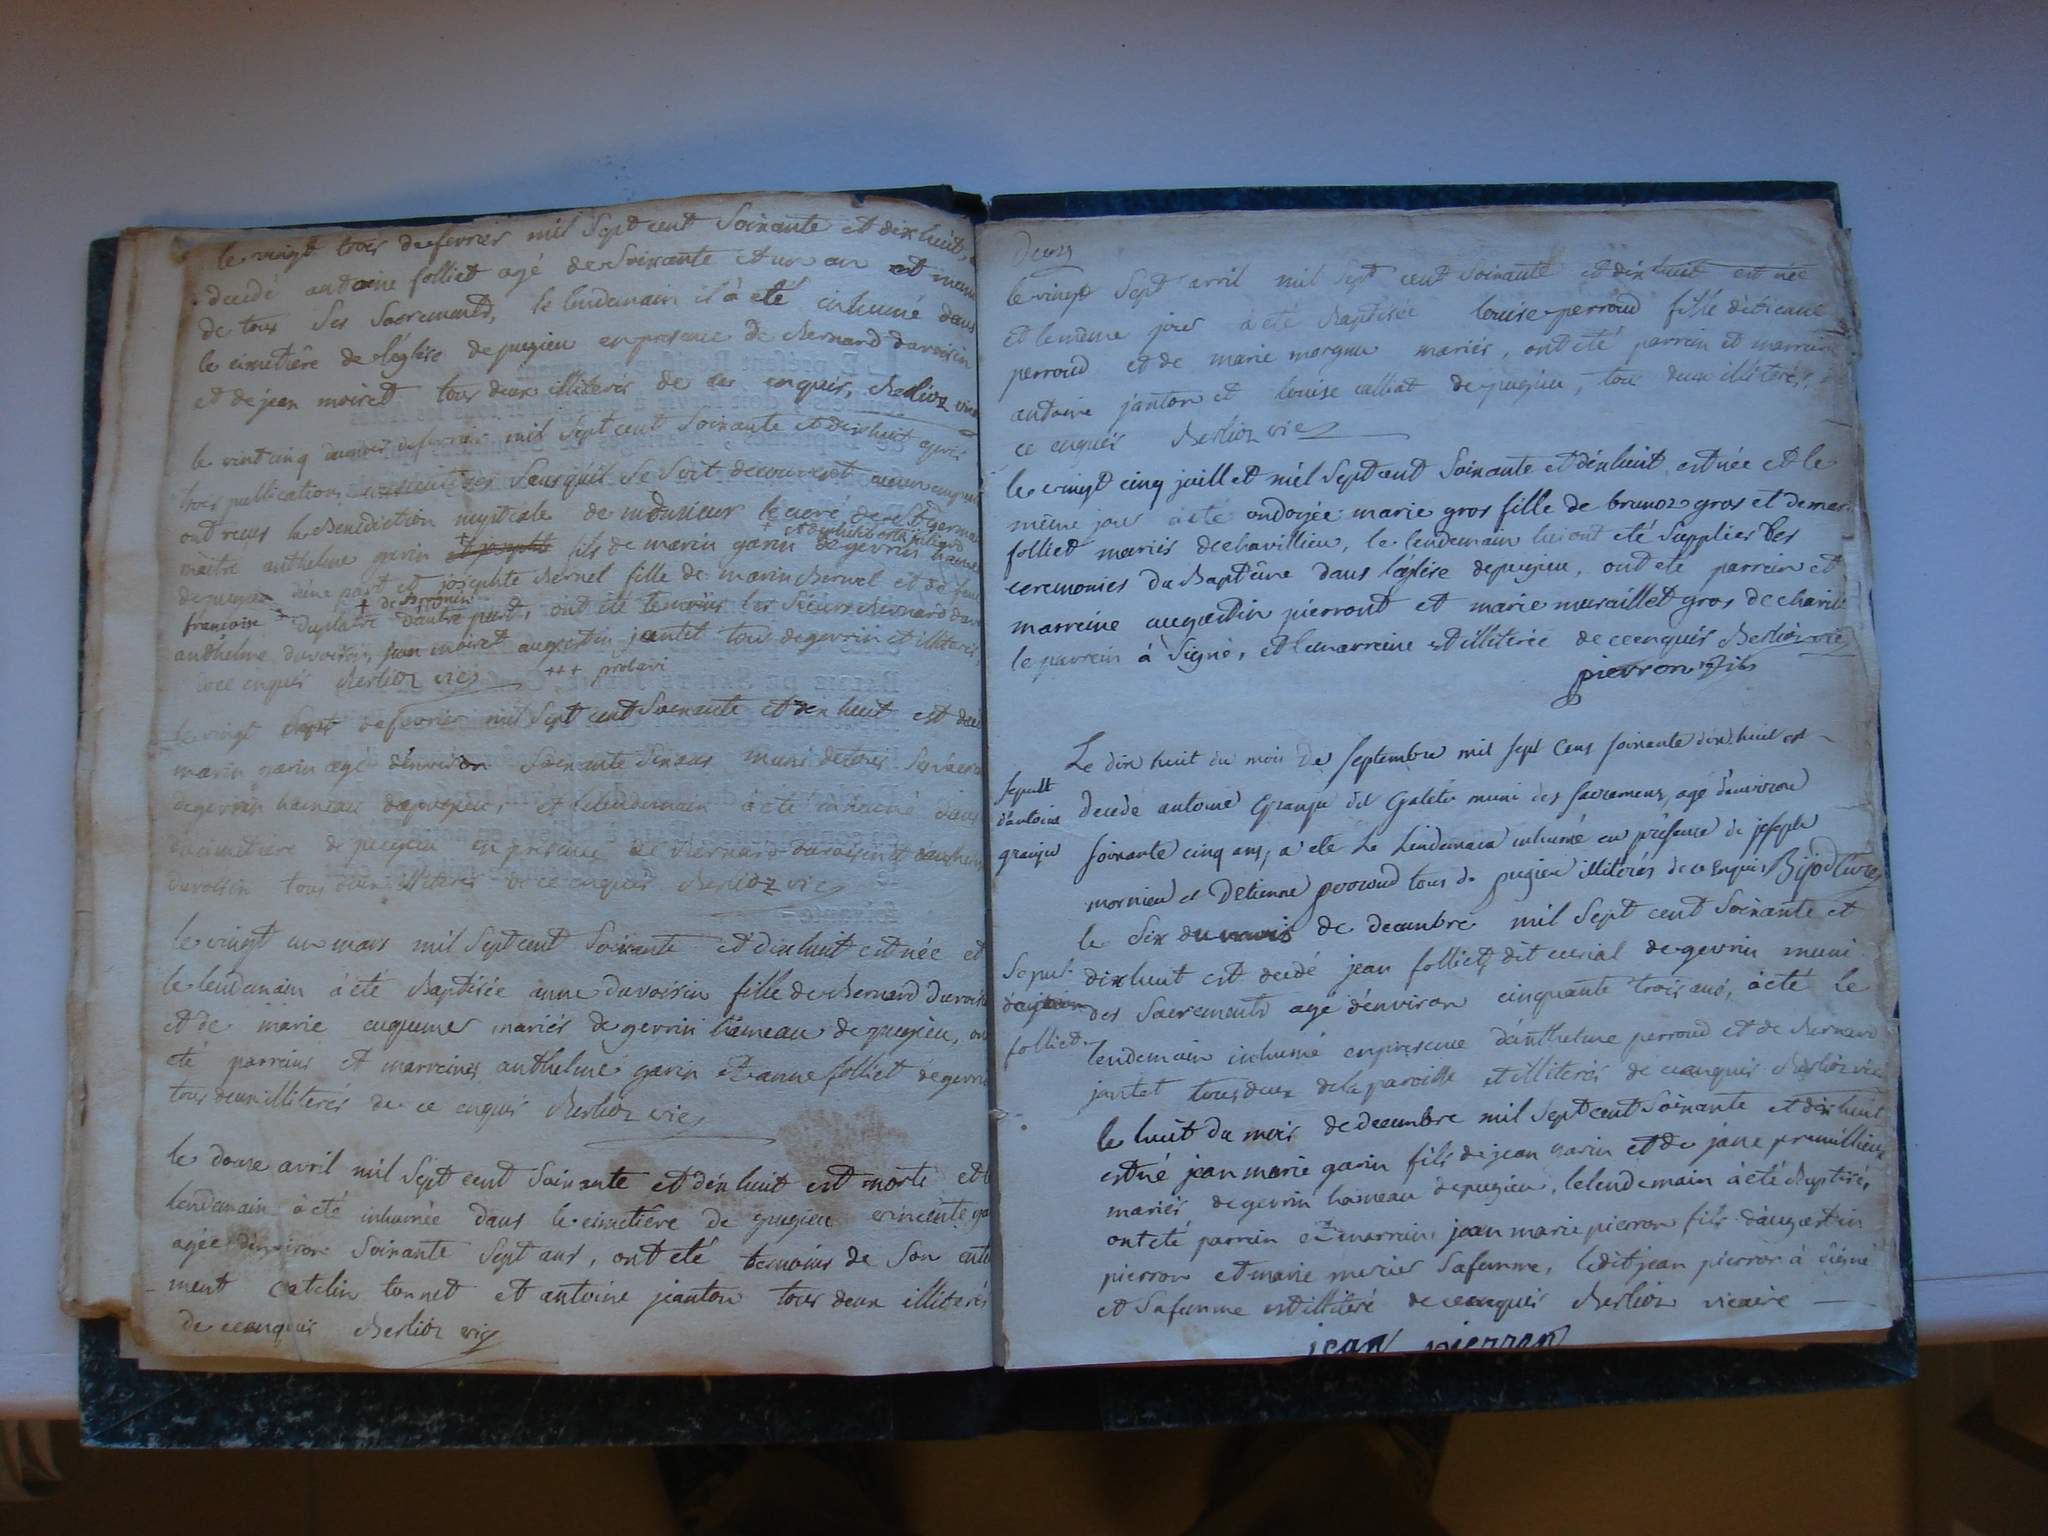 le vingt trois de fevrier mil sept cent soixante et dix huit,
decedé antoine folliet agé de soixante et un an et muni
de tous ses sacrements, le lendemain il à eté inhumé dans
le cimetiêre de l'églíse de pugieu en presence de Bernard davoisin
et de jean moiret tous deux illiterés de ce enquis, Berlioz vic
le vint cinq fevrier mil sept cent soixante et dix huit aprés
trois publications sans qu'il se soit decouvert aucun
ont reçus la Benediction nuptiale de monsieur le curé de st germain
maitre anthelme garin et josephte fils de marin garin de gevrin hameau
de pugieu d'une part et josephte Bernel fille de marin Bernel et de feue
françoise duplatre d'autre part, ont été temoins les sieurs Bernard davoisin
anthelme davoisin, jean moiret augustin jantet tous de gevrin et illiterés,
de ce enquis Berlioz vic +++
le vingt sept de fevrier mil sept cent soixante et dix huit est decedé
marin garin agé d'environ soixante six ans muni de tous ses sacrements
de gevrin hameau de pugieu, et le lendemain à eté inhumé dans
le cimetiere de pugieu en presence de Bernard davoisin et d'anthelme
davoisin tous deux illiterés de ce enquis Berlioz vic
le vingt un mars mil sept cent soixante et dix huit est née et
le lendemain à été Baptisée anne davoisin fille de Bernard davoisin
et de marie mariés de gevrin hameau de pugieu, ont
eté parreins et marreines anthelme garin et anne folliet de gevrin
tous deux illiterés de ce enquis Berlioz vic
le douze avril mil sept cent soixante et dix huit est morte et le
lendemain à été inhumée dans le cimetiere de pugieu vincente
agée d'environ soixante sept ans, ont eté temoins de son enterre
ment catelin tonnet et antoine jeanton tous deux illiterés
de ce enquis Berlioz vic
deux
le vingt sept avril mil sept cent soixante et dix huit est née
et le même jour à été Baptisée louise perroud fille d'étienne
perroud et de marie mariés, ont eté parrein et marreine
antoine janton et louise calliat de pugieu, tous deux illiterés, de
ce enquis Berlioz vic
le vingt cinq juillet mil sept cent soixante et dix huit est née et le
même jour à été ondoyée marie gros fille de brunoz gros et de marie
folliet mariés de chavillieu, le lendemain lui ont eté supplies les
ceremonies du Baptême dans l'eglise de pugieu, ont eté parrein et
marreine augustin pierront et marie muraillet gros de chavil
le parrein à signé, et la marreine est illiterée de ce enquis Berlioz vic
pierron fils
Le dix huit du mois de septembre mil sept cens soixante dix huit est
sepult
d'antoine
granju
decedé antoine granju dit Galets muni des sacremens, agé d'environ
soixante cinq ans, a eté Le Lendemain inhumé en présence de joseph
mornieu et D'etienne perroud tous de pugieu illitérés de ce Enquis Bijod curé
le six du mois de decembre mil sept cent soixante et
Sepul.
de jean
folliet
dix huit est decedé jean folliet dit curial de gevrin muni
des sacrements agé d'environ cinquante trois ans, à été le
lendemain inhumé en presence d'anthelme perroud et de Bernard
jantet tous deux de la paroisse et illiterés de ce enquis Berlioz vic
le huit du mois de decembre mil sept cent soixante et dix huit
est né jean marie garin fils de jean garin et de jane premillieu
mariés de gevrin hameau de pugieu, le lendemain à été Baptisé,
ont été parrein et marreine jean marie pierron fils d'augustin
pierron et marie mercier sa femme, ledit jean pierron à signé
et sa femme est illiteré de ce enquis Berlioz vicaire
jean pierron